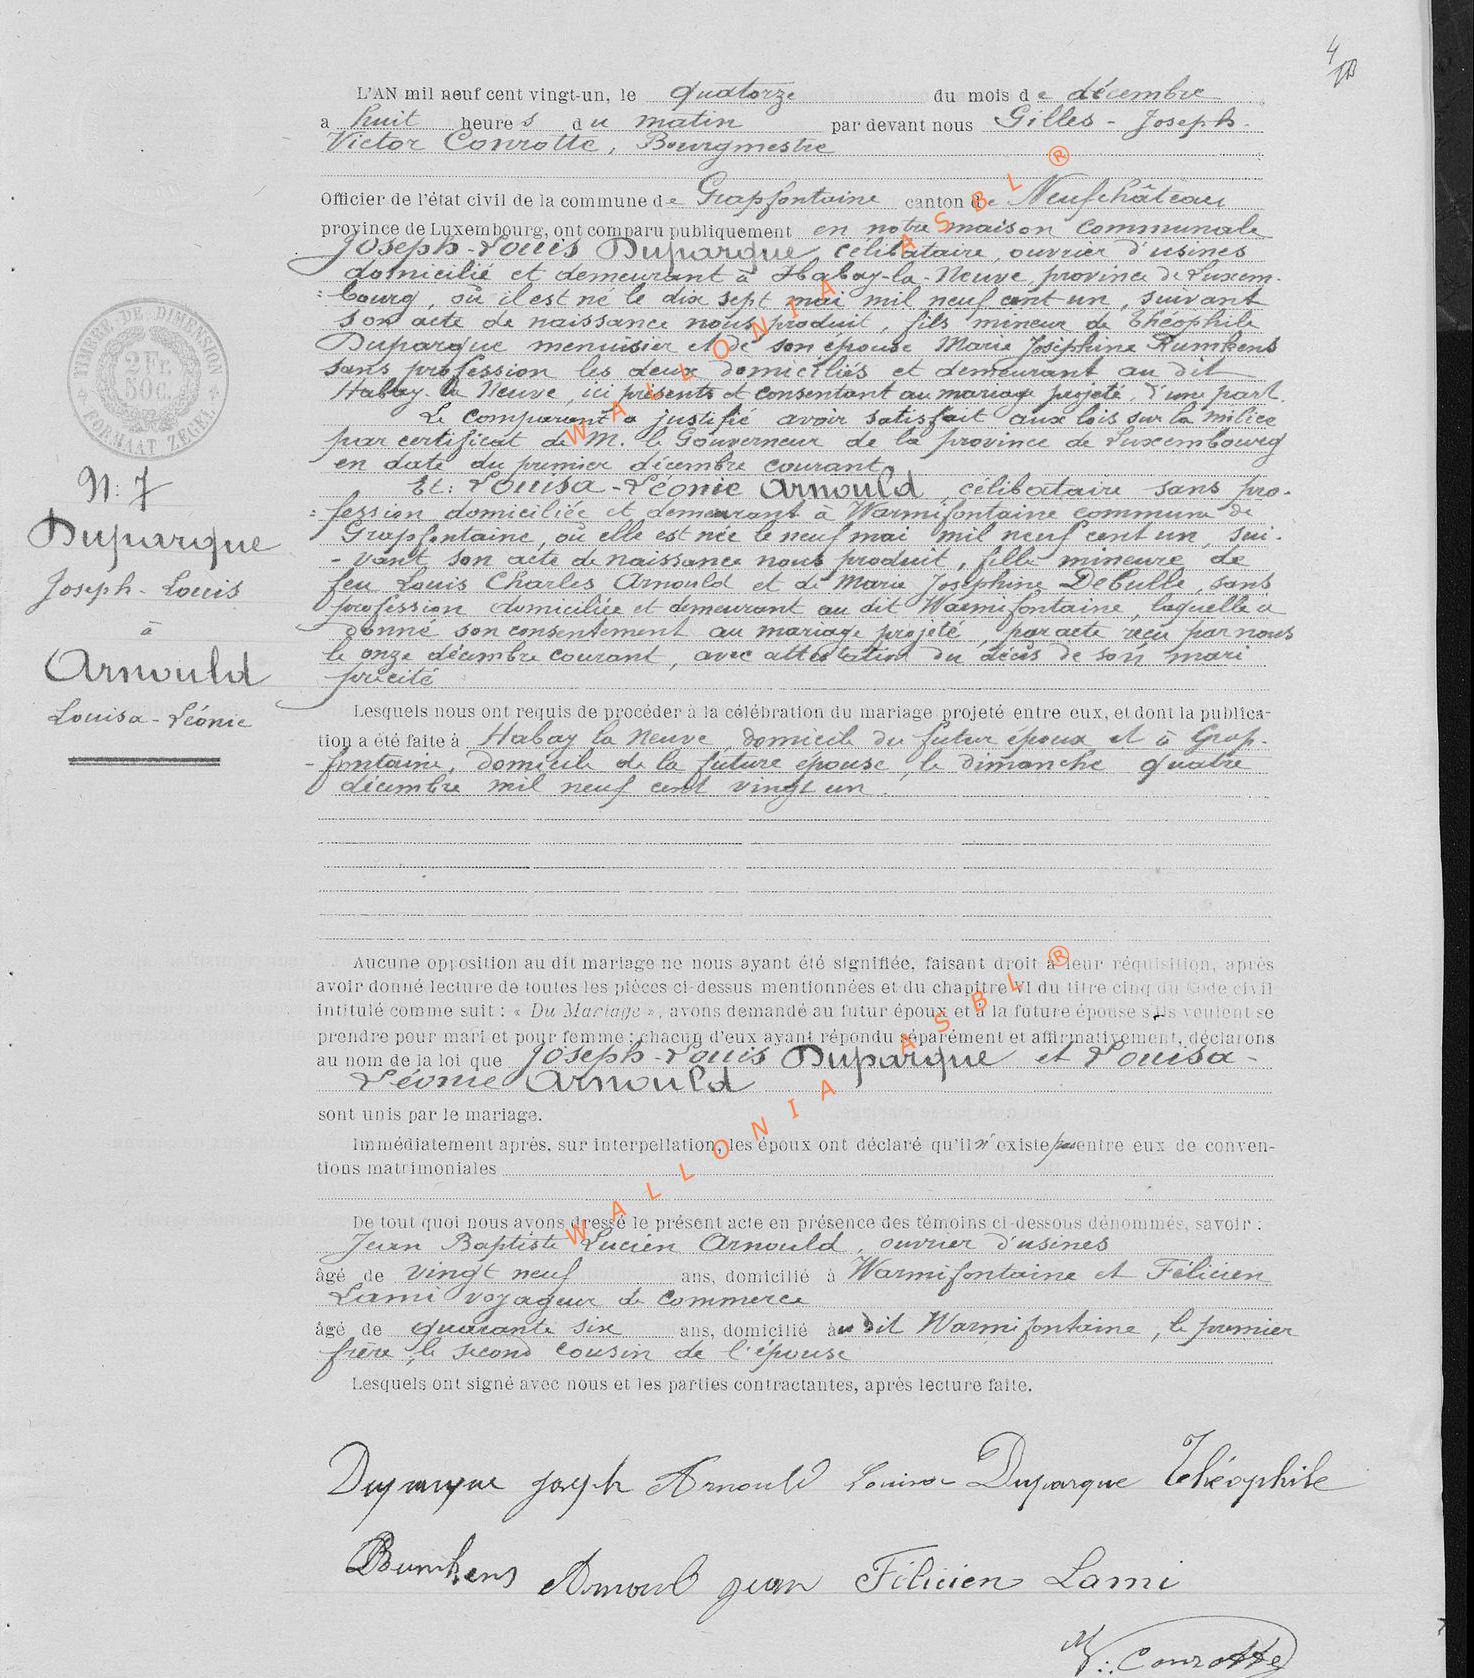 4
L'AN mil neuf cent vingt-un, le quatorze du mois de décembre
a huit heures du matin par devant nous Gilles-Joseph-
Victor Conrotte, Bourgmestre
Officier de l'état civil de la commune de Grapfontaine canton de Neufchâteau
province de Luxembourg, ont comparu publiquement en notre maison communale
Joseph-Louis Duparque, célibataire, ouvrier d'usines
domicilié et demeurant à Habay-la-Neuve, province de Luxem-
:bourg, où il est né le dix sept mai mil neuf cent un, suivant
son acte de naissance nous produit, fils mineur de Théophile
Duparque menuisier et de son épouse Marie Joséphine Rumkens
sans profession les deux domiciliés et demeurant au dit
Habay-la Neuve, ici présents et consentant au mariage projeté, d'une part.
Le comparant a justifié avoir satisfait aux lois sur la milice
par certificat de M. le Gouverneur de la province de Luxembourg
en date du premier décembre courant.
Et: Louisa-Léonie Arnould, célibataire sans pro-
:fession domiciliée et demeurant à Warmifontaine commune de
Grapfontaine, où elle est née le neuf mai mil neuf cent un, sui-
-vant son acte de naissance nous produit, fille mineure de
feu Louis Charles Arnould et de Marie Joséphine Debulle, sans
profession domiciliée et demeurant au dit Warmifontaine, laquelle a
donné son consentement au mariage projeté, par acte reçu par nous
le onze décembre courant, avec attestation du décès de son mari
précité
TIMBRE DE DIMENSION
2 Fr.
50c.
FORMAAT ZEGEL
N: 7
Duparque
Joseph-Louis
à
Arnould
Louisa-Léonie
Lesquels nous ont requis de procéder à la célébration du mariage projeté entre eux, et dont la publica-
tion a été faite à Habay la Neuve, domicile du futur époux et à Grap-
-fontaine, domicile de la future épouse, le dimanche quatre
décembre mil neuf cent vingt un.
Aucune opposition au dit mariage ne nous ayant été signifiée, faisant droit à leur réquisition, après
avoir donné lecture de toutes les pièces ci-dessus mentionnées et du chapitre VI du titre cinq du Code civil
intitulé comme suit : « Du Mariage », avons demandé au futur époux et à la future épouse s'ils veulent se
prendre pour mari et pour femme ; chacun d'eux ayant répondu séparément et affirmativement, déclarons
au nom de la loi que Joseph-Louis Duparque et Louisa-
Léonie Arnould
sont unis par le mariage.
Immédiatement après, sur interpellation, les époux ont déclaré qu'il n'existe pas entre eux de conven-
tions matrimoniales
De tout quoi nous avons dressé le présent acte en présence des témoins ci-dessous dénommés, savoir :
Jean Baptiste Lucien Arnould, ouvrier d'usines
âgé de vingt neuf ans, domicilié à Warmifontaine et Félicien
Lami voyageur de commerce
âgé de quarante six ans, domicilié au dit Warmifontaine, le premier
frère, le second cousin de l'épouse
Lesquels ont signé avec nous et les parties contractantes, après lecture faite.
Duparque Joseph Arnould Louisa Duparque Théophile
Rumkens Arnoul Jean Félicien Lami
V. Conrotte
WALLONIA ASBL ®
WALLONIA ASBL ®